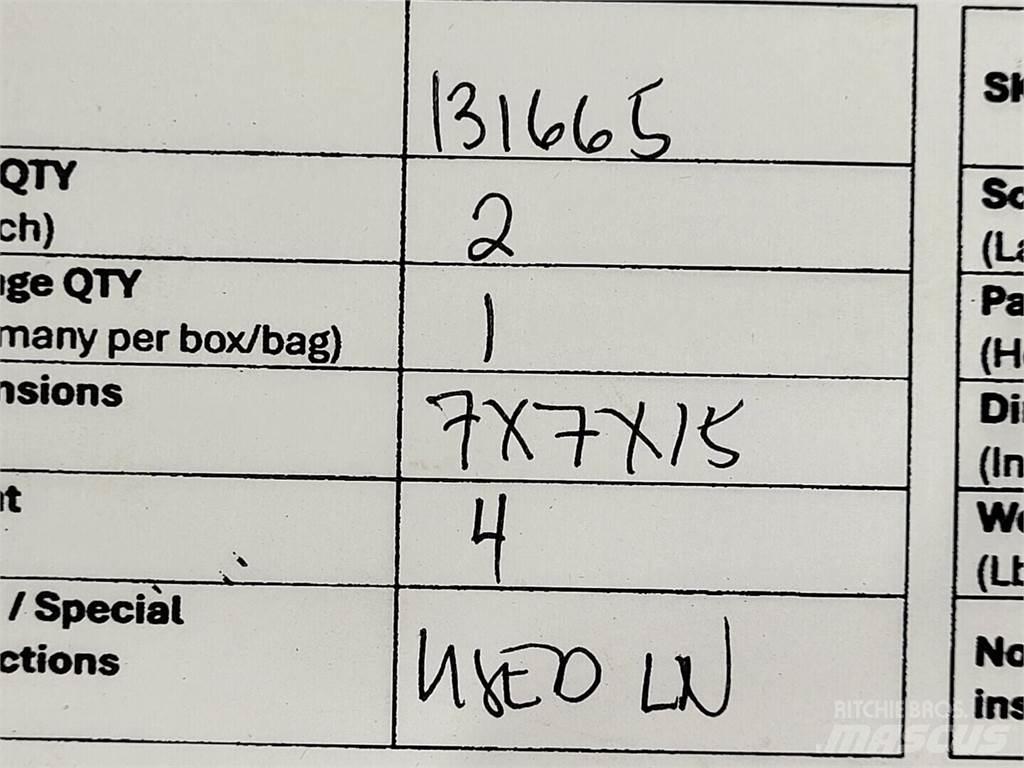 131665
QTY
ch)
2
ge QTY
many per box/bag)
1
nsions
7X7X15
t
4
/ Special
ctions
USED LN
SK
So
(La
Pa
(H
Di
(In
We
(Lb
No
ins
RITCHIE BROS.
MASCUS